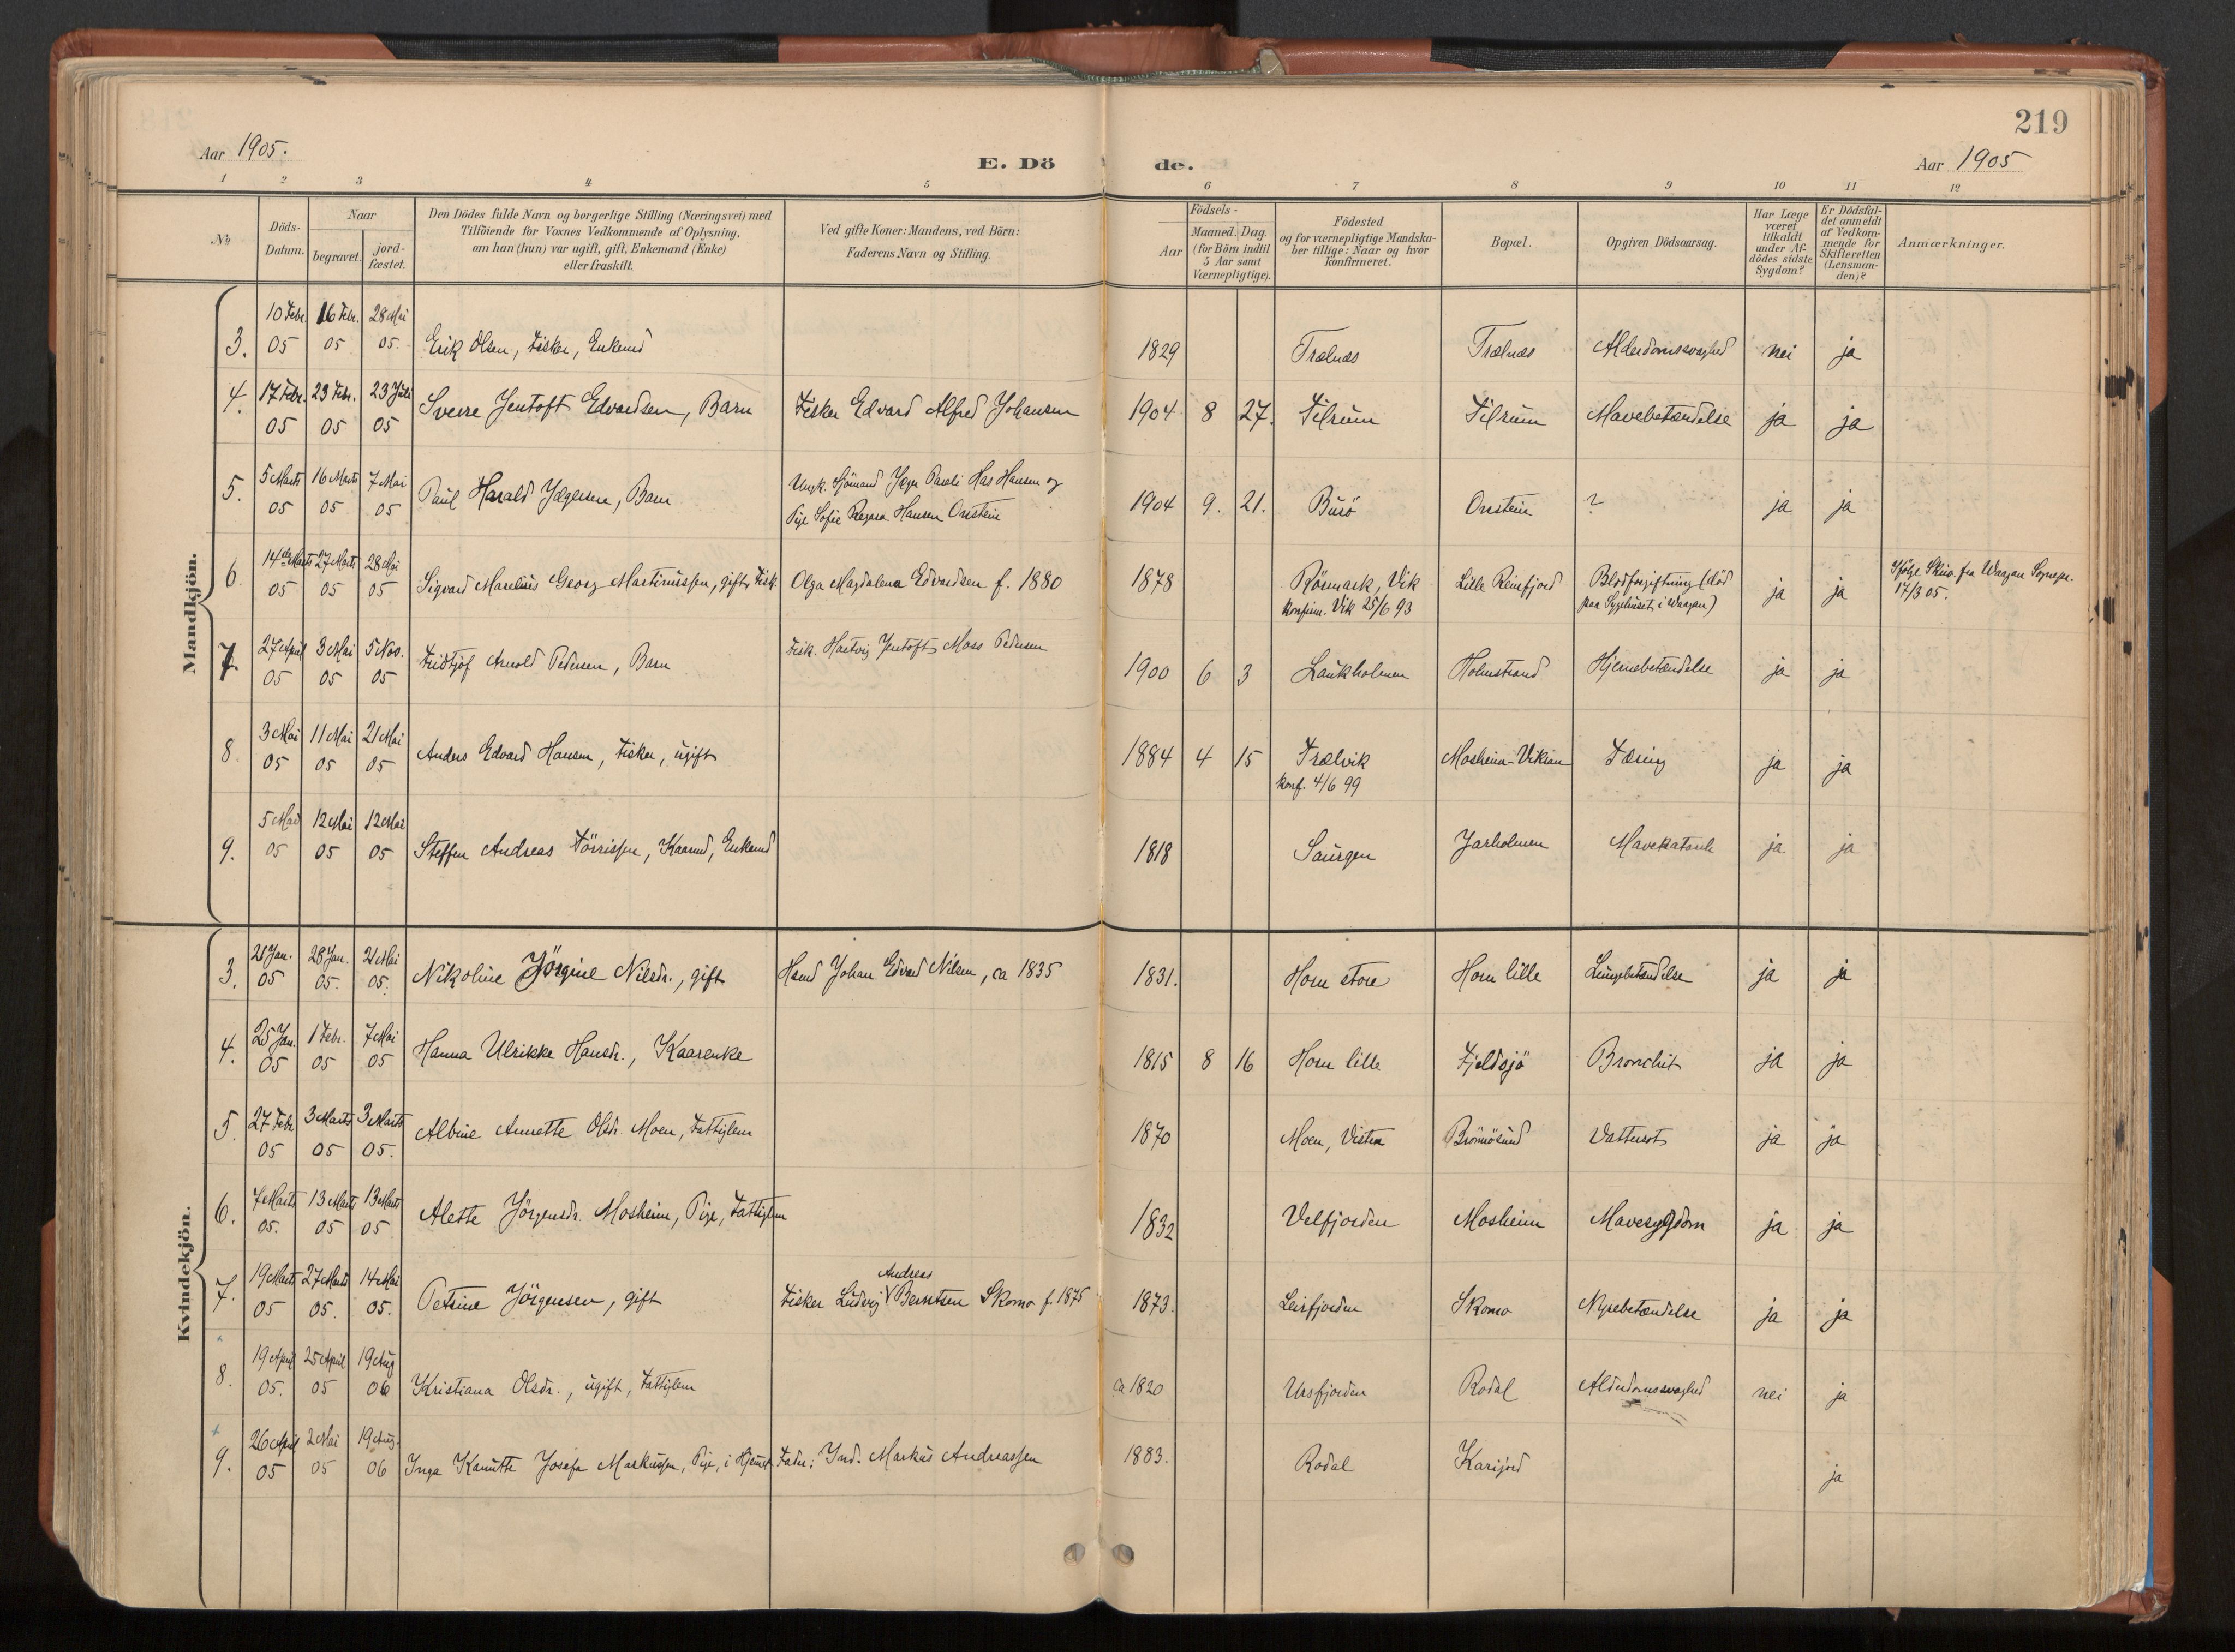 219
Aar 1905.
E. Dö de.
Aar 1905
1 2 3 4 5 6 7 8 9 10 11 12
No
Döds-Datum.
Naar
begravet.
jord-fæstet.
Den Dödes fulde Navn og borgerlige Stilling (Næringsvei) med
Tilföiende for Voxnes Vedkommende af Oplysning,
om han (hun) var ugift, gift, Enkemand (Enke)
eller fraskilt.
Ved gifte Koner: Mandens, ved Börn:
Faderens Navn og Stilling.
Födsels-
Aar
Maaned. Dag.
(for Börn indtil
5 Aar samt
Værnepligtige).
Födested
og for værnepligtige Mandska-
ber tillige: Naar og hvor
konfirmeret.
Bopæl.
Opgiven Dödsaarsag.
Har Læge
været
tilkaldt
under Af-
dödes sidste
Sygdom?
Er Dödsfal-
det anmeldt
af Vedkom-
mende for
Skifteretten
(Lensman-
den)?
Anmærkninger.
Mandkjön.
3. 10 Febr. 05 16 Febr. 05 28 Mai 05. Erik Olsen, Fisker, Enkemd 1829 Trælnæs Trælnæs Alderdomssvaghed nei ja
4. 17 Febr. 05 23 Febr. 05 23 Juli 05 Sverre Jentoft Edvardsen, Barn Fisker Edvard Alfred Johansen 1904 8 27. Tilrum Tilrum Mavebetændelse ja ja
5. 5 Marts 05 16 Marts 05 7 Mai 05 Paul Harald Jægersen, Barn Ungk. Sjömand Hansen og
Pige Sofie Hansen Onstein 1904 9. 21. Burö Onstein ? ja ja
6. 14de Marts 05 27 Marts 05 28 Mai 05 Sigvard Marelius Georg Martinussen, gift Fisk. Olga Magdalena Edvardsen f. 1880 1878 Rörmark, Vik
konfirm. Vik 25/6 93 Lille Reinfjord Blodforgiftning (död
paa Sygehuset i Waagan) ja ja Ifölge Skriv. fra Waagan Sognepr.
17/3 05.
7. 27 April 05 3 Mai 05 5 Nov. 05 Fridtjof Arnold Pedersen, Barn Fisk. Hartvig Jentoft Moss Pedersen 1900 6 3 Laukholmen Holmstrand Hjernebetændelse ja ja
8. 3 Mai 05 11 Mai 05 21 Mai 05 Anders Edvard Hansen, Fisker, ugift 1884 4 15 Trælvik
konf. 4/6 99 Mosheim-Vikran Tæring ja ja
9. 5 Mai 05 12 Mai 05 12 Mai 05 Steffen Andreas Törrissen, Kaarmd, Enkemd 1818 Saurgen Jarholmen Mavekatarrh ja ja
Kvindekjön.
3. 21 Jan. 05 28 Jan. 05. 21 Mai 05. Nikoline Jörgine Nilsdr., gift Hsmd Johan Edvard Nilsen, ca 1835 1831. Horn store Horn lille Lungebetændelse ja ja
4. 25 Jan. 05 1 Febr. 05 7 Mai 05 Hanna Ulrikke Hansdr., Kaarenke 1815 8 16 Horn lille Fjeldsjö Bronchit ja ja
5. 27 Febr. 05 3 Marts 05 3 Marts 05. Albine Annette Olsdr. Moen, Fattiglem 1870 Moen, Visten Brönnösund Vattersot ja ja
6. 7 Marts 05. 13 Marts 05 13 Marts 05 Alette Jörgensdr. Mosheim, Pige, Fattiglem 1832 Velfjorden Mosheim Mavesygdom ja ja
7. 19 Marts 05 27 Marts 05. 14 Mai 05. Petrine Jörgensen, gift Fisker Ludvig Andreas Berntsen Skomo f. 1875 1873. Leirfjorden Skomo Nyrebetændelse ja ja
8. 19 April 05. 25 April 05 19 Aug 06 Kristiana Olsdr., ugift, Fattiglem ca 1820 Ursfjorden Rodal Alderdomssvaghed nei ja
9. 26 April 05 2 Mai 05 19 Aug. 06 Inga Kanutte Josefa Markussen, Pige, i Hjemst. Fader: Ind. Markus Andreassen 1883. Rodal Karijord ja